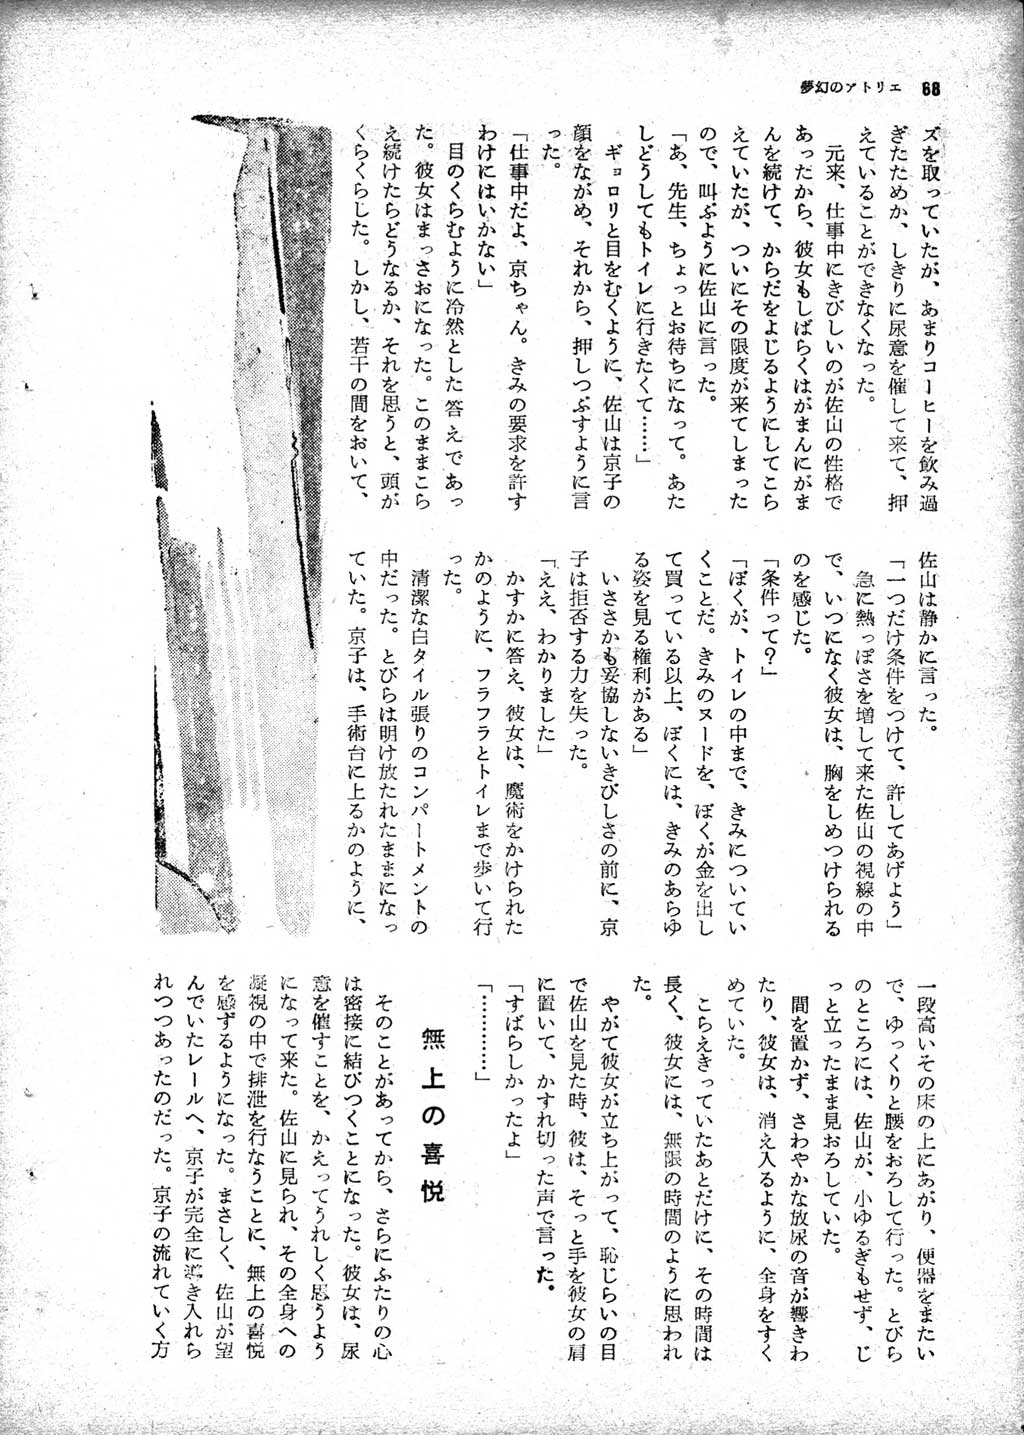 夢幻のアトリエ 68
ズを取っていたが、あまりコーヒーを飲み過
ぎたためか、しきりに尿意を催して来て、押
えていることができなくなった。
元来、仕事中にきびしいのが佐山の性格で
あったから、彼女もしばらくはがまんにがま
んを続けて、からだをよじるようにしてこら
えていたが、ついにその限度が来てしまった
ので、叫ぶように佐山に言った。
「あ、先生、ちょっとお待ちになって。あた
しどうしてもトイレに行きたくて……」
ギョロリと目をむくように、佐山は京子の
顔をながめ、それから、押しつぶすように言
った。
「仕事中だよ、京ちゃん。きみの要求を許す
わけにはいかない」
目のくらむように冷然とした答えであっ
た。彼女はまっさおになった。このままこら
え続けたらどうなるか、それを思うと、頭が
くらくらした。しかし、若干の間をおいて、
佐山は静かに言った。
「一つだけ条件をつけて、許してあげよう」
急に熱っぽさを増して来た佐山の視線の中
で、いつになく彼女は、胸をしめつけられる
のを感じた。
「条件って？」
「ぼくが、トイレの中まで、きみについてい
くことだ。きみのヌードを、ぼくが金を出し
て買っている以上、ぼくには、きみのあらゆ
る姿を見る権利がある」
いささかも妥協しないきびしさの前に、京
子は拒否する力を失った。
「ええ、わかりました」
かすかに答え、彼女は、魔術をかけられた
かのように、フラフラとトイレまで歩いて行
った。
清潔な白タイル張りのコンパートメントの
中だった。とびらは明け放たれたままになっ
ていた。京子は、手術台に上るかのように、
一段高いその床の上にあがり、便器をまたい
で、ゆっくりと腰をおろして行った。とびら
のところには、佐山が、小ゆるぎもせず、じ
っと立ったまま見おろしていた。
間を置かず、さわやかな放尿の音が響きわ
たり、彼女は、消え入るように、全身をすく
めていた。
こらえきっていたあとだけに、その時間は
長く、彼女には、無限の時間のように思われ
た。
やがて彼女が立ち上がって、恥じらいの目
で佐山を見た時、彼は、そっと手を彼女の肩
に置いて、かすれ切った声で言った。
「すばらしかったよ」
「…………」
無上の喜悦
そのことがあってから、さらにふたりの心
は密接に結びつくことになった。彼女は、尿
意を催すことを、かえってうれしく思うよう
になって来た。佐山に見られ、その全身への
凝視の中で排泄を行なうことに、無上の喜悦
を感ずるようになった。まさしく、佐山が望
んでいたレールへ、京子が完全に導き入れら
れつつあったのだった。京子の流れていく方